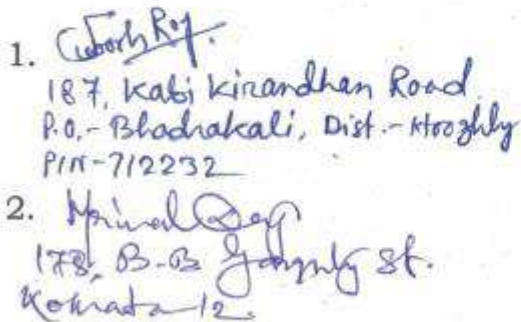 1. Roy.
187, Kabi Kirandhan Road
P.O.- Bhadrakali, Dist.- Hooghly
PIN-712232
2. Mrinal Dey
178, B.B Ganguly St.
Kolkata-12.